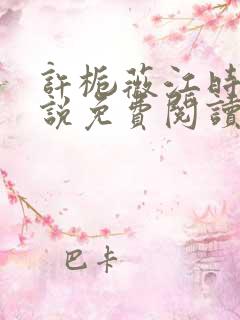 許梔薇江時
說免費閱讀
巴卡